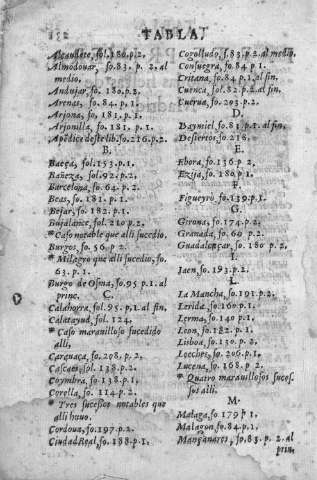 132 TABLA
Alcaudete, fol. 180. p. 2.
Almodouar, fo. 83. p. 2. al
medio.
Andujar, fo. 180. p. 2.
Arenas, fo. 84. p. 1.
Arjona, fo, 181. p. 1.
Arjonilla, fo. 181. p. 1.
Apédice deste lib. fo. 216. p. 2.
B.
Baeça, fol. 153. p. 1.
Bañeza, fol. 92. p. 2.
Barcelona, fo. 64. p. 2.
Beas, fo. 181. p. 1.
Bejar, fo. 182. p. 1.
Bujalance, fol. 210 p. 2.
* Caso notable que alli sucedio.
Burgos, fo. 56. p 2.
* Milagro que alli sucedio, fo.
63. p. 1.
Burgo de Osma, fo. 95 p. 1. al
princ. C.
Calahorra, fol. 95. p. 1. al fin.
Calatayud, fol. 124.
* Caso marauilloso sucedido
alli.
Carauaca, fo. 208. p. 2.
Cascaes, fol. 138. p. 2.
Coymbra, fo. 138. p. 1.
Corella, fo. 114. p. 2.
* Tres sucessos notables que
alli huuo.
Cordoua, fo. 197. p. 2.
Ciudad Real, fo. 188. p. 1.
Cogolludo, f. 83. p. 2. al medio.
Consuegra, fo. 84 p. 1.
Critana, fo. 84 p. 1, al fin.
Cuenca, fol. 82. p. 2. al fin.
Cuerua, fo. 203. p. 2.
D.
Daymiel, fo. 83. p. 1. al fin.
Desiertos, fo. 218.
E.
Ebora, fo. 136 p 2.
Ezija, fo. 180 p 1.
F.
Figueyrò, fo. 139. p 1.
G.
Girona, fo. 174. p 2.
Granada, fo. 69 p 2.
Guadalcaçar, fo. 180 p 2.
I.
Jaen, fo. 193. p 2.
L.
La Mancha, fo. 191. p 2.
Lerida, fo. 160. p 1.
Lerma, fo. 140 p 1.
Leon, fo. 182. p 1.
Lisboa, fo. 130. p 2.
Loeches, fo. 206. p 1.
Lucena, fo. 168. p 2.
* Quatro marauillosos suces-
sos alli.
M.
Malaga, fo. 179 p 1.
Malagon, fo. 84. p 1.
Mançanares, fo. 83. p 2. al
prin.